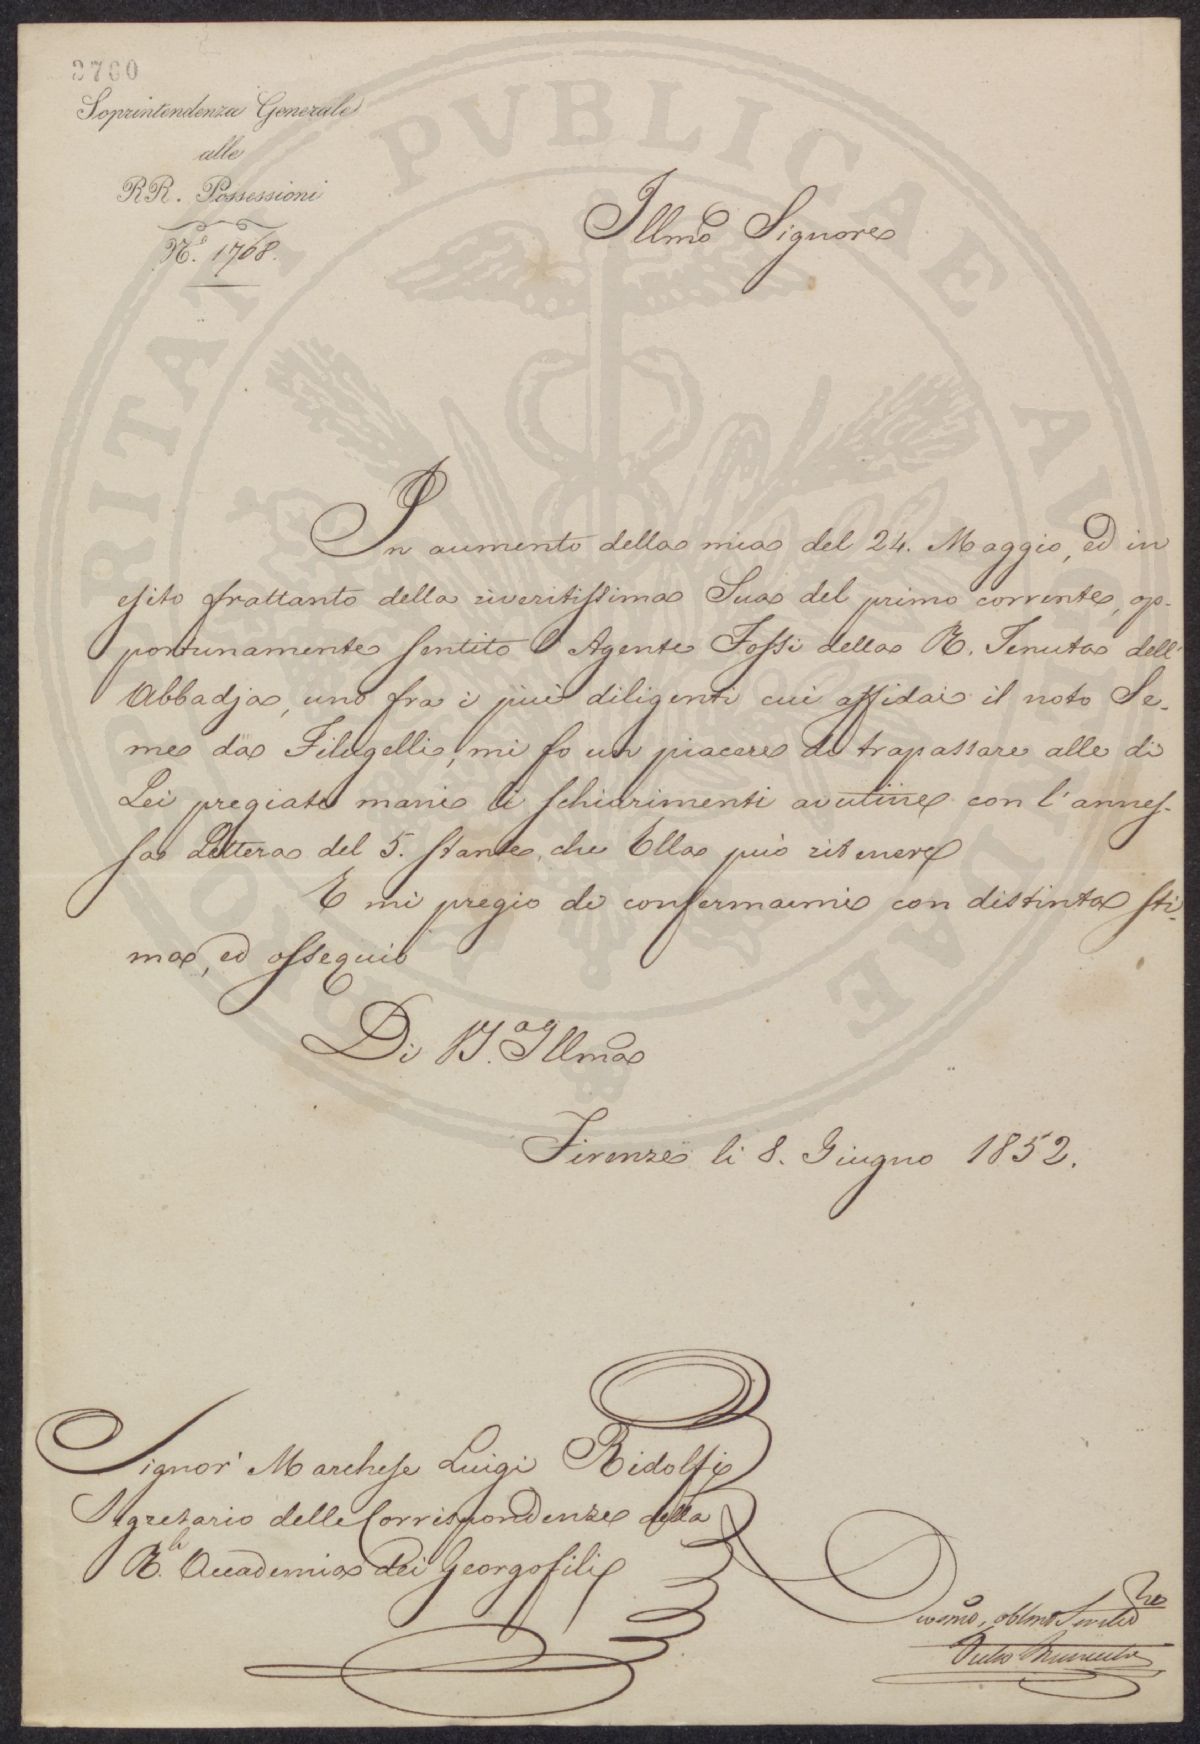 2760
Soprintendenza Generale
alle
RR. Possessioni
N.º 1768.
Illmo Signore
In aumento della mia del 24. Maggio, ed in
esito frattanto della riveritissima Sua del primo corrente, op-
portunamente sentito l'Agente Fossi della R. Tenuta dell'
Abbadja, uno fra i più diligenti cui affidai il noto Se-
me da Filugelli, mi fo un piacere di trapassare alle di
Lei pregiate mani li schiarimenti avutine con l'annes-
sa Lettera del 5. stante, che Ella può ritenere
E mi pregio di confermarmi con distinta sti-
ma, ed ossequio
Di V.ª Illma
Firenze li 8. Giugno 1852.
Signor Marchese Luigi Ridolfi
Segretario delle Corrispondenze della
R.le Accademia dei Georgofili
Devmo, oblmo Servitore
PVBLICAE